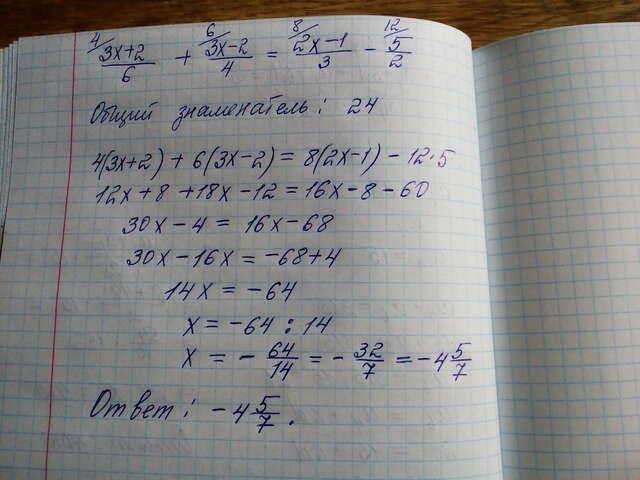 4/ 3x+2/6 + 6/ 3x-2/4 = 8/ 2x-1/3 - 12/ 5/2
Общий знаменатель: 24
4(3x+2)+6(3x-2)=8(2x-1)-12·5
12x+8+18x-12=16x-8-60
30x-4=16x-68
30x-16x=-68+4
14x=-64
x=-64:14
x=-64/14=-32/7=-4 5/7
Ответ: -4 5/7.